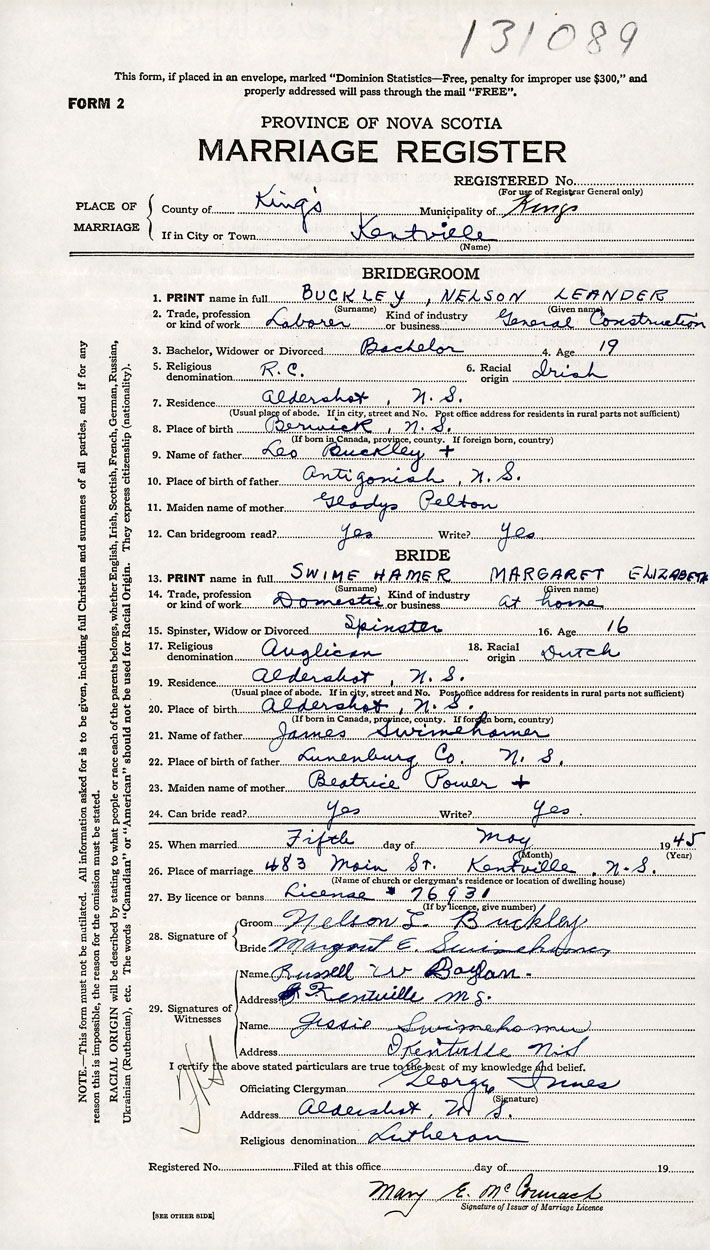 131089
This form, if placed in an envelope, marked "Dominion Statistics—Free, penalty for improper use $300," and
properly addressed will pass through the mail "FREE".
FORM 2
PROVINCE OF NOVA SCOTIA
MARRIAGE REGISTER
REGISTERED No.
(For use of Registrar General only)
PLACE OF MARRIAGE
County of King's Municipality of Kings
If in City or Town Kentville
(Name)
BRIDEGROOM
1. PRINT name in full BUCKLEY, NELSON LEANDER
(Surname) (Given name)
2. Trade, profession or kind of work Laborer Kind of industry or business General Construction
3. Bachelor, Widower or Divorced Bachelor 4. Age 19
5. Religious denomination R.C. 6. Racial origin Irish
7. Residence Aldershot, N.S.
(Usual place of abode. If in city, street and No. Post office address for residents in rural parts not sufficient)
8. Place of birth Berwick, N.S.
(If born in Canada, province, county. If foreign born, country)
9. Name of father Leo Buckley +
10. Place of birth of father Antigonish, N.S.
11. Maiden name of mother Gladys Pelton
12. Can bridegroom read? Yes Write? Yes
BRIDE
13. PRINT name in full SWIMEHAMER MARGARET ELIZABETH
(Surname) (Given name)
14. Trade, profession or kind of work Domestic Kind of industry or business at home
15. Spinster, Widow or Divorced Spinster 16. Age 16
17. Religious denomination Anglican 18. Racial origin Dutch
19. Residence Aldershot, N.S.
(Usual place of abode. If in city, street and No. Post office address for residents in rural parts not sufficient)
20. Place of birth Aldershot, N.S.
(If born in Canada, province, county. If foreign born, country)
21. Name of father James Swimehamer
22. Place of birth of father Lunenburg Co. N.S.
23. Maiden name of mother Beatrice Power +
24. Can bride read? Yes Write? Yes.
25. When married Fifth day of May 1945
(Month) (Year)
26. Place of marriage 483 Main St. Kentville, N.S.
(Name of church or clergyman's residence or location of dwelling house)
27. By licence or banns License # 76931
(If by licence, give number)
28. Signature of
Groom Nelson L. Buckley
Bride Margaret E. Swimehamer
29. Signatures of Witnesses
Name Russell W Boylan
Address Kentville N.S.
Name Jessie Swimehamer
Address Kentville N.S
I certify the above stated particulars are true to the best of my knowledge and belief.
Officiating Clergyman George Innes
(Signature)
Address Aldershot, N.S.
Religious denomination Lutheran
Registered No. Filed at this office day of 19
Mary E. McCormack
Signature of Issuer of Marriage Licence
[SEE OTHER SIDE]
NOTE.—This form must not be mutilated. All information asked for is to be given, including full Christian and surnames of all parties, and if for any
reason this is impossible, the reason for the omission must be stated.
RACIAL ORIGIN will be described by stating to what people or race each of the parents belongs, whether English, Irish, Scottish, French, German, Russian,
Ukrainian (Ruthenian), etc. The words "Canadian" or "American" should not be used for Racial Origin. They express citizenship (nationality).